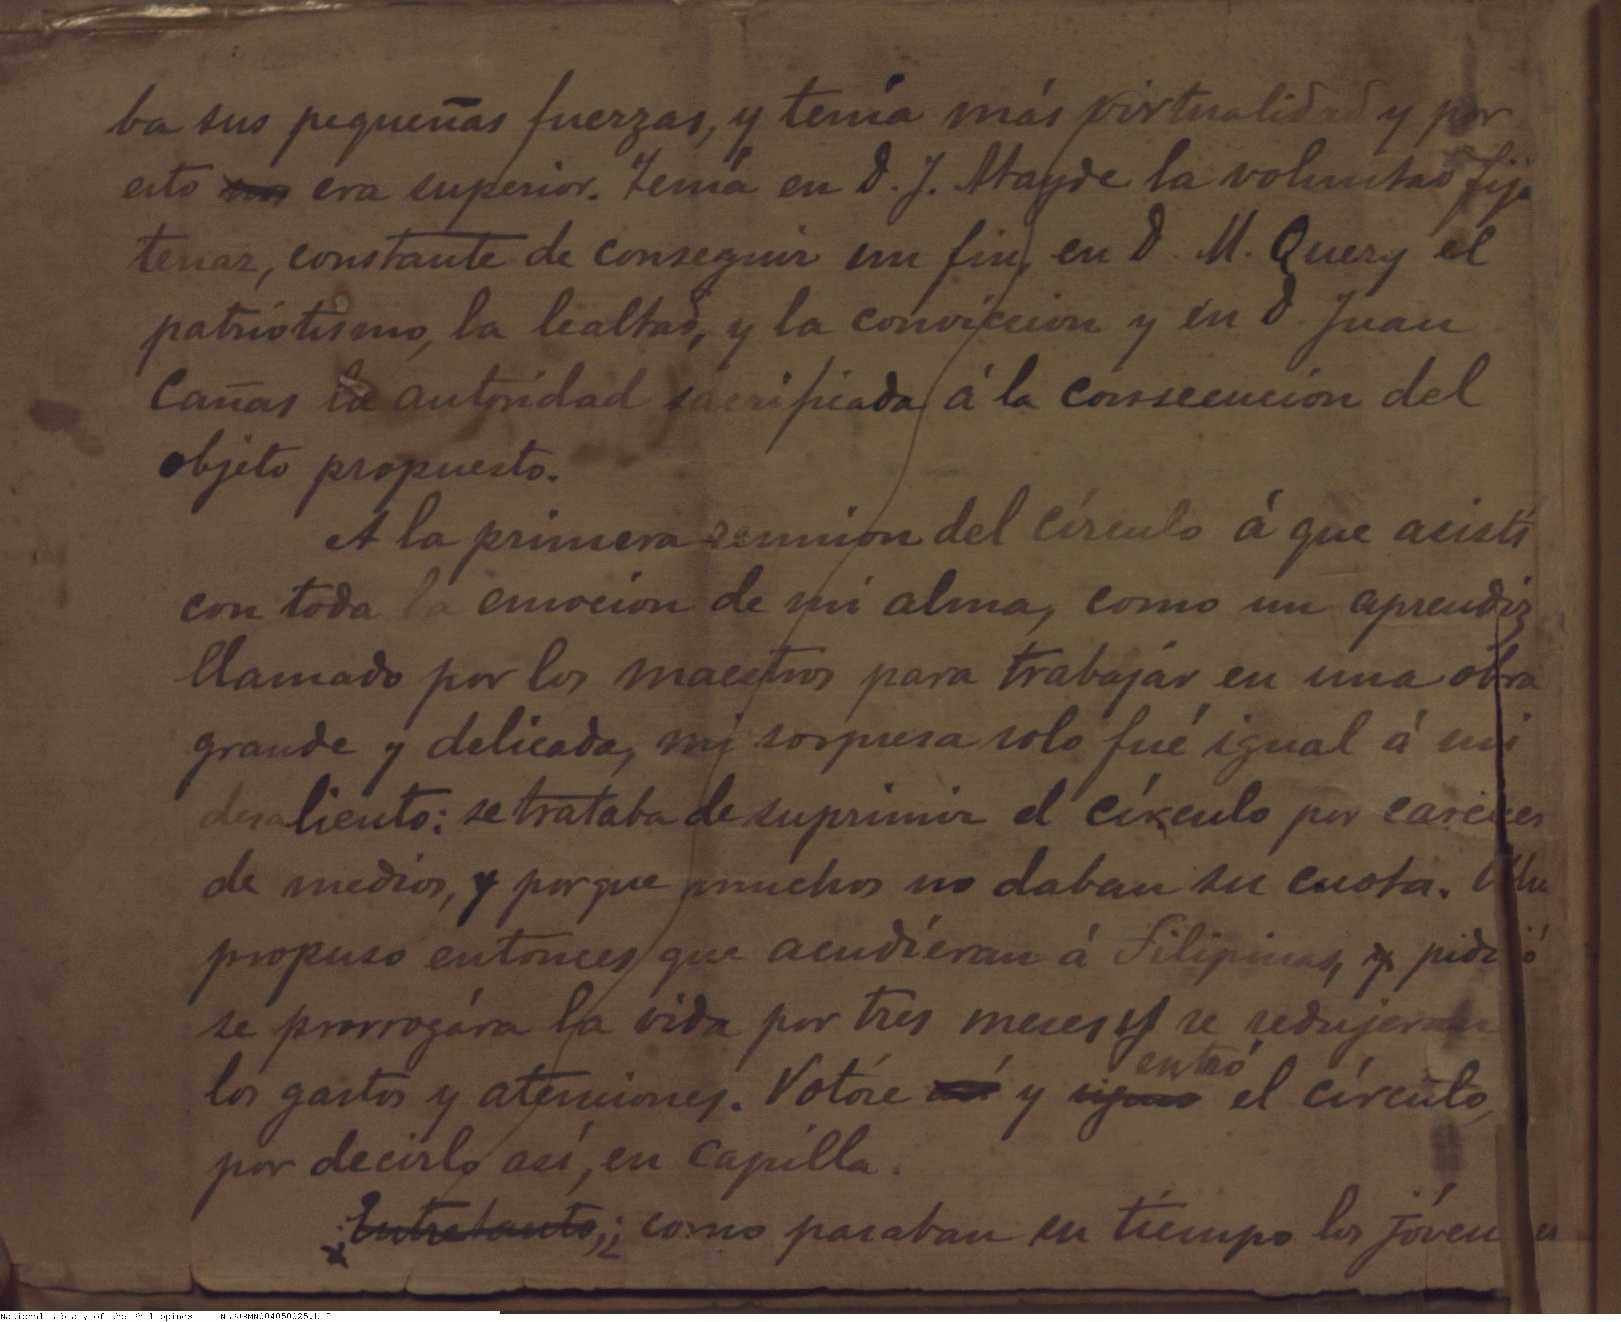 ba sus pequeñas fuerzas, y tenía más virtualidad y por
esto era superior. Tenía en D. J. Atayde la voluntad fija
tenaz, constante de conseguir un fin, en D. M. Query el
patriotismo, la lealtad, y la convicción y en D. Juan
Cañas la autoridad sacrificada á la consecucion del
objeto propuesto.
A la primera reunion del círculo á que asistí
con toda la emocion de mi alma, como un aprendiz
llamado por los maestros para trabajár en una obra
grande y delicada, mi sorpresa solo fué igual á mi
desaliento: se trataba de suprimir el círculo por carecer
de medios, y porque muchos no daban su cuota.
propuso entonces que acudiéran á Filipinas, y pidió
se prorrogára la vida por tres meses y se redujeran
los gastos y atenciones. Votóse y entró el círculo,
por decirlo así, en capilla.
Entretanto; como pasaban su tiempo los jóvenes
National Library of the Philippines